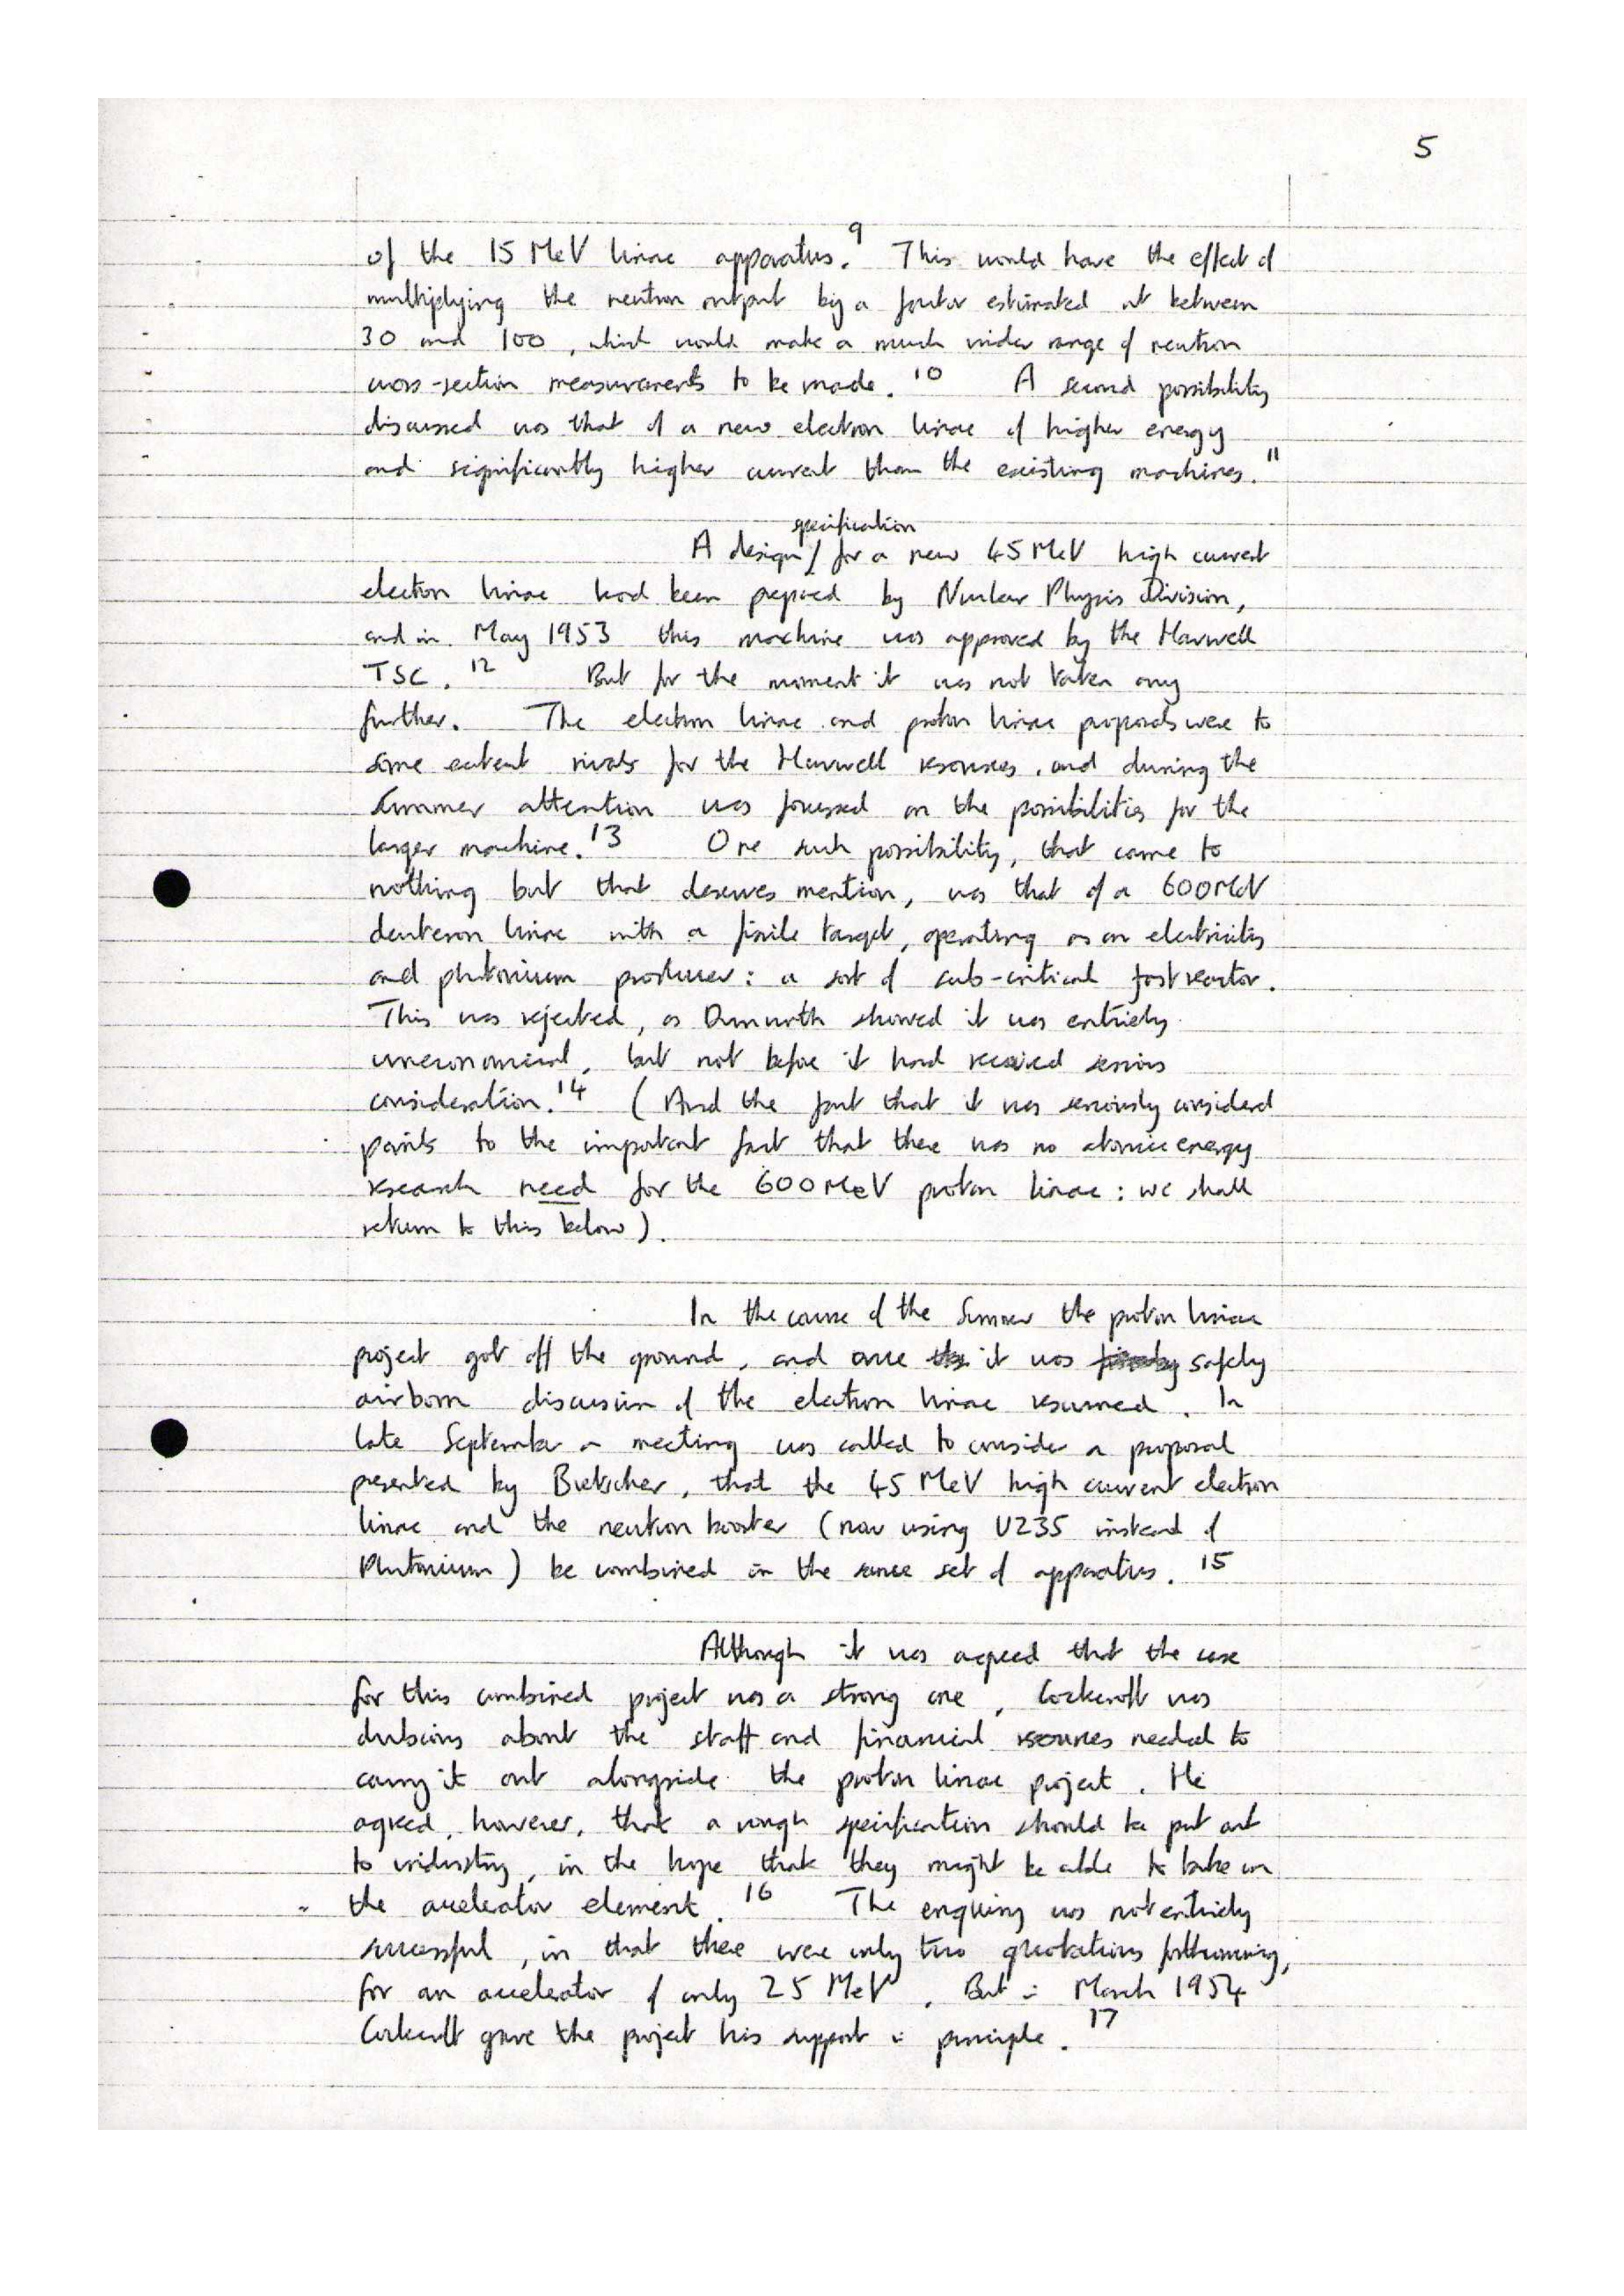 5
of the 15 MeV linac apparatus.⁹ This would have the effect of
multiplying the neutron output by a factor estimated at between
30 and 100, which would make a much wider range of neutron
cross-section measurements to be made.¹⁰ A second possibility
discussed was that of a new electron linac of higher energy
and significantly higher current than the existing machines.¹¹
specification
A design / for a new 45 MeV high current
electron linac had been prepared by Nuclear Physics Division,
and in May 1953 this machine was approved by the Harwell
TSC.¹² But for the moment it was not taken any
further. The electron linac and proton linac proposals were to
some extent rivals for the Harwell resources, and during the
Summer attention was focussed on the possibilities for the
larger machine.¹³ One such possibility, that came to
nothing but that deserves mention, was that of a 600 MeV
deuteron linac with a fissile target, operating as an electricity
and plutonium producer: a sort of sub-critical fast reactor.
This was rejected, as Dunworth showed it was entirely
uneconomical, but not before it had received serious
consideration.¹⁴ (And the fact that it was seriously considered
points to the important fact that there was no atomic energy
research need for the 600 MeV proton linac: we shall
return to this below).
In the course of the Summer the proton linac
project got off the ground, and once it was safely
airborn discussion of the electron linac resumed. In
late September a meeting was called to consider a proposal
presented by Bretscher, that the 45 MeV high current electron
linac and the neutron booster (now using U235 instead of
Plutonium) be combined in the same set of apparatus.¹⁵
Although it was agreed that the case
for this combined project was a strong one, Cockcroft was
dubious about the staff and financial resources needed to
carry it out alongside the proton linac project. He
agreed, however, that a rough specification should be put out
to industry, in the hope that they might be able to take on
the accelerator element.¹⁶ The enquiry was not entirely
successful, in that there were only two quotations forthcoming,
for an accelerator of only 25 MeV. But in March 1954
Cockcroft gave the project his support in principle.¹⁷